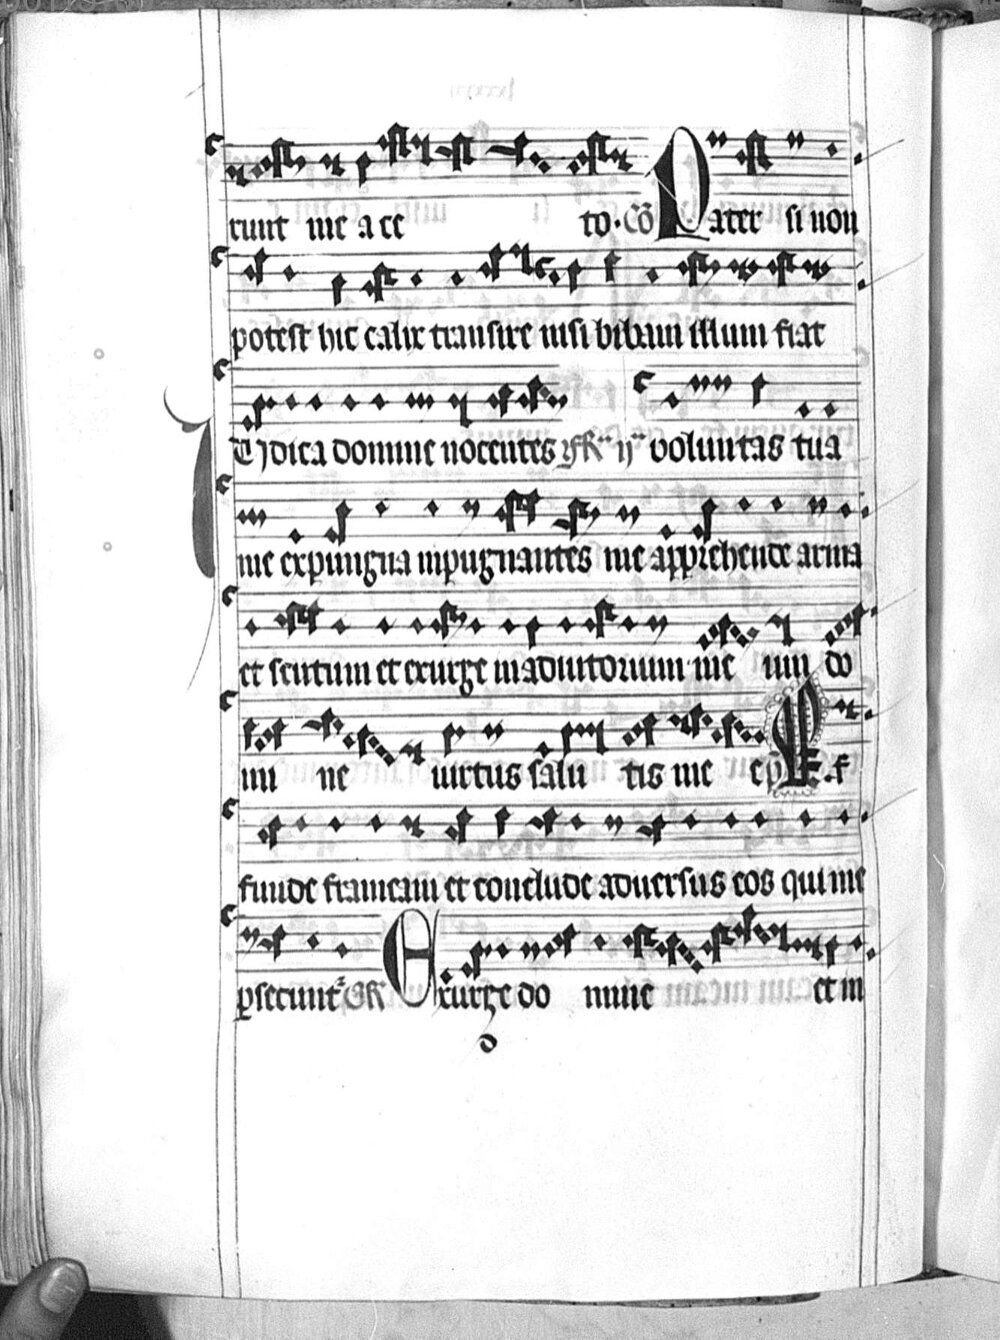 runt me a ce to. Cō Pater si non
potest hic calix transire nisi bibam illum fiat
Iudica domine nocentes voluntas tua
me expungna inpugnantes me apprehende arma
et scutum et exurge in adiutorium me um do
mi ne uirtus salu tis me ep̄ Ef
funde frameam et conclude aduersus eos qui me
persecunt̄ GR Exurge do mine et in